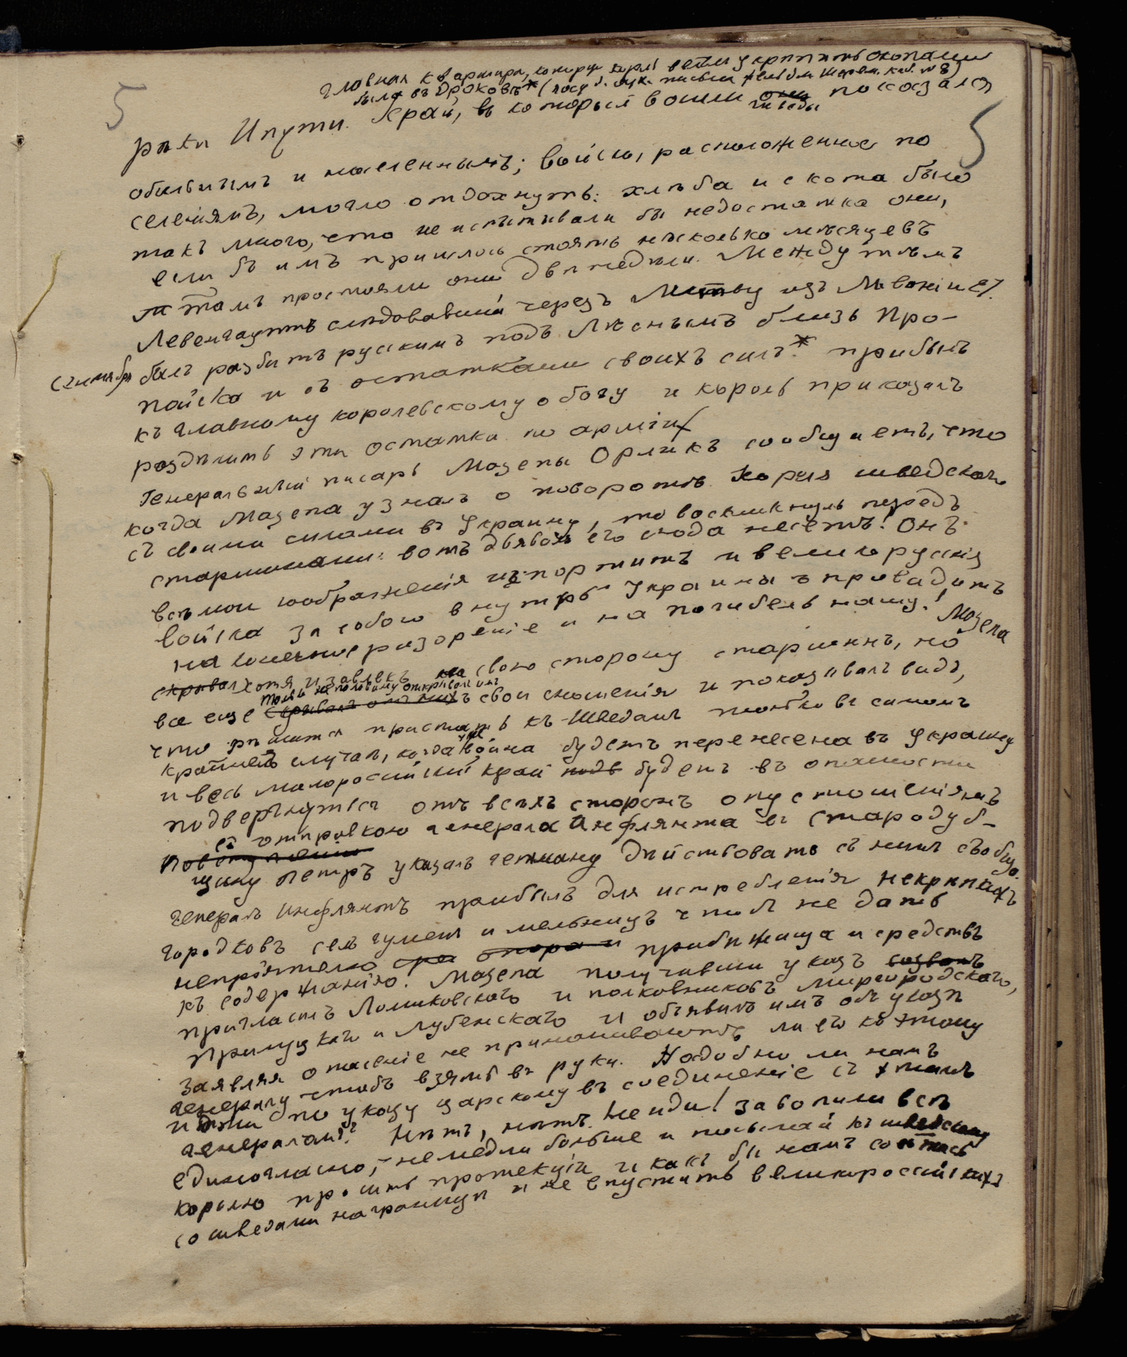 5
главная квартира, которую король велел укрепить окопами
была въ Дроковѣ*
рѣки Ипути. Край, въ который вошли шведы показался
5
обильнымъ и населеннымъ; войско, расположенное по
селеніямъ, могло отдохнуть: хлѣба и скота было
такъ много, что не испытывали бы недостатка они,
если бъ имъ пришлось стоять нѣсколько мѣсяцевъ
Тамъ простояли они двѣ недѣли. Между тѣмъ
Левенгауптъ слѣдовавшій черезъ Литву изъ Ливоніи 27.
сентября былъ разбитъ русскимъ подъ Лѣснымъ близь Про-
пойска и съ остатками своихъ силъ* прибылъ
къ главному королевскому обозу и король приказалъ
раздѣлить эти остатки по арміи
Генеральный писарь Мазепы Орликъ сообщаетъ, что
когда Мазепа узналъ о поворотѣ короля шведскаго
съ своими силами въ Украину, то воскликнулъ передъ
старшинами: вотъ дьяволъ его сюда несетъ! Онъ
всѣ мои соображенія испортитъ и великорусскія
войска за собою внутрь Украины впровадитъ
на конечное разореніе и на погибель нашу! Мазепа
хотя и завлекъ на свою сторону старшинъ, но
все еще только на половину открывалъ имъ
скрывалъ отъ нихъ свои сношенія и показывалъ видъ,
что рѣшится пристать къ Шведамъ только въ самомъ
крайнемъ случаѣ, когда уже война будетъ перенесена въ Украину
и весь малороссійскій край будетъ въ опасности
подвергнуться отъ всѣхъ сторонъ опустошеніямъ
съ отправкою генерала Инфлянта въ Стародуб-
щину Петръ указалъ гетману дѣйствовать съ нимъ сообща.
генералъ Инфлянтъ прибылъ для истребленія некрѣпкихъ
городковъ селъ гуменъ и мельницъ чтобъ не дать
непріятелю прибѣжища и средствъ
къ содержанію. Мазепа получивши указъ созвалъ
пригласилъ Ломиковскаго и полковниковъ Миргородскаго,
Прилуцкаго и Лубенскаго и объявилъ имъ объ указѣ
заявляя опасеніе не приманиваютъ ли его къ этому
генералу чтобъ взять въ руки. Надобно ли намъ
идти по указу царскому въ соединеніе съ этимъ
генераломъ? Нѣтъ, нѣтъ. Не иди! завопили всѣ
единогласно, – не медли больше и посылай къ шведскому
королю просить протекціи и какъ бы намъ сойтись
со шведами на границѣ и не впустить великороссійскихъ